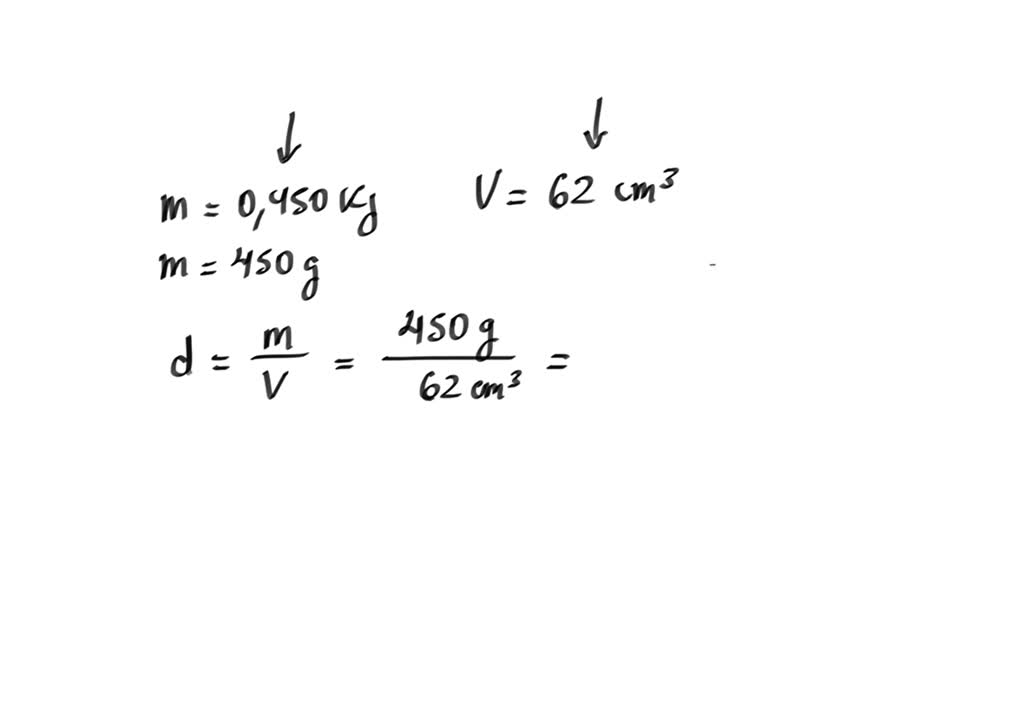 ↓ ↓
m = 0,450 Kg V = 62 cm³
m = 450 g
d = m/V = 450 g / 62 cm³ =